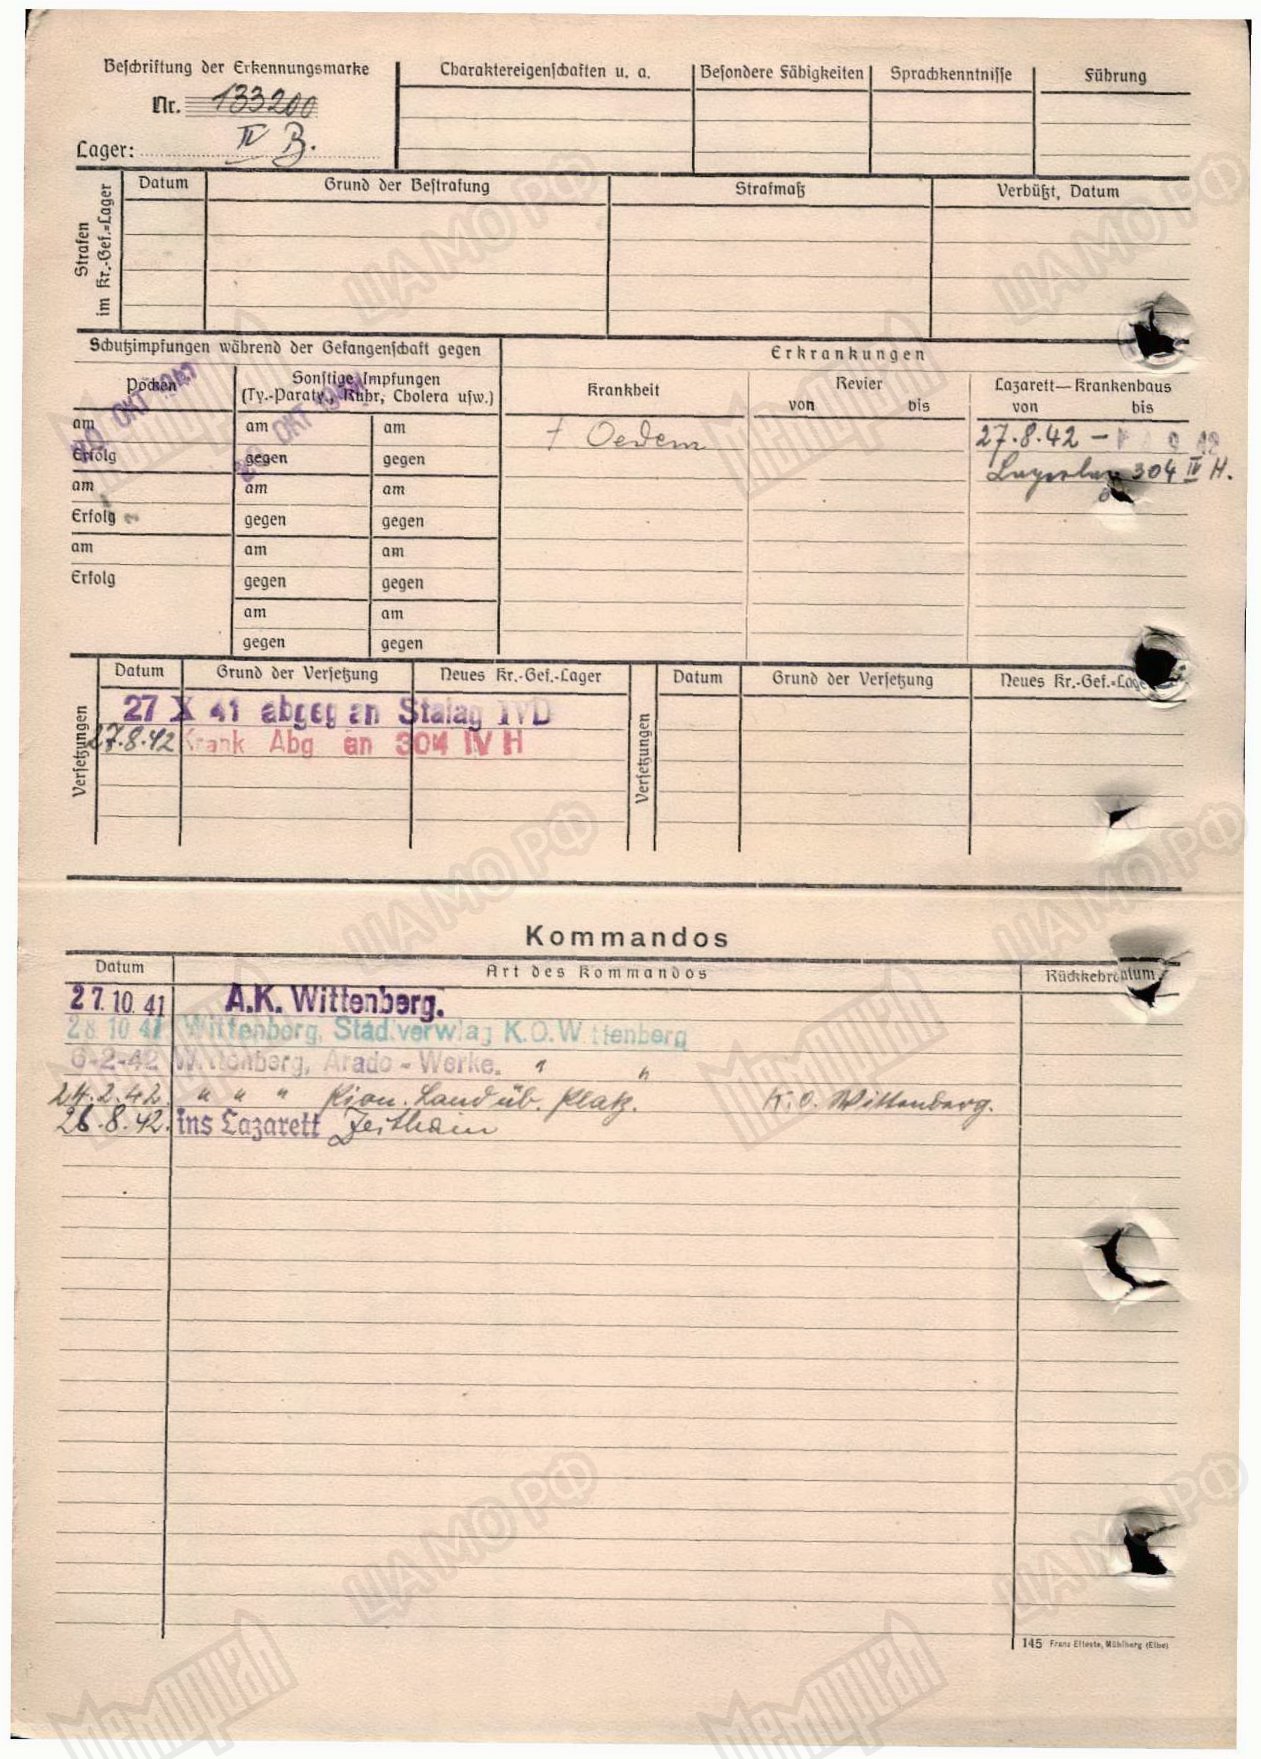 Beschriftung der Erkennungsmarke
Nr. 133200
Lager: IV B.
Charaktereigenschaften u. a.
Besondere Fähigkeiten
Sprachkenntnisse
Führung
Strafen im Kr.-Gef.=Lager
Datum
Grund der Bestrafung
Strafmaß
Verbüßt, Datum
Schutzimpfungen während der Gefangenschaft gegen
Erkrankungen
Pocken
Sonstige Impfungen
(Ty.-Paraty., Ruhr, Cholera usw.)
Krankheit
Revier
von bis
Lazarett—Krankenhaus
von bis
OKT 1941
OKT 1941
am am am
† Oedem
27.8.42 –
Erfolg gegen gegen
304 IV H.
am am am
Erfolg gegen gegen
am am am
Erfolg gegen gegen
am am
gegen gegen
Versetzungen
Datum
Grund der Versetzung
Neues Kr.-Gef.-Lager
Versetzungen
Datum
Grund der Versetzung
Neues Kr.-Gef.=Lage
27 X 41 abgeg an Stalag IVD
27.8.42 Krank Abg an 304 IV H
Kommandos
Datum
Art des Kommandos
Rückkehr
27.10.41 A.K. Wittenberg.
28 10 41 Wittenberg, Stad.verwlag K.O.W ttenberg
6-2-42 Wittenberg, Arado - Werke. " "
24.2.42. " " " Pion. Landüb. Platz. K.O. Wittenberg.
26.8.42. ins Lazarett Zeithain
145 Franz Elteste, Mühlberg (Elbe)
ЦАМО РФ
Мемориал